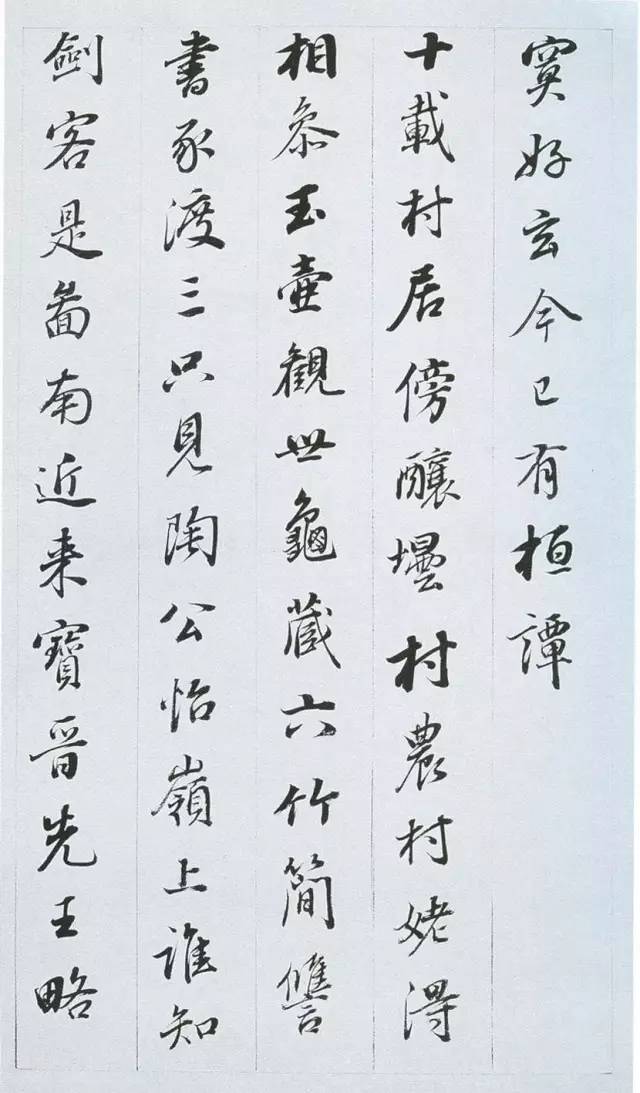 寞好玄今已有桓譚
十載村居傍釀壜村農村姥得
相叅玉壺觀世龜藏六竹簡讐
書豕渡三只見陶公怡嶺上誰知
劍客是啚南近来寶晋先王略